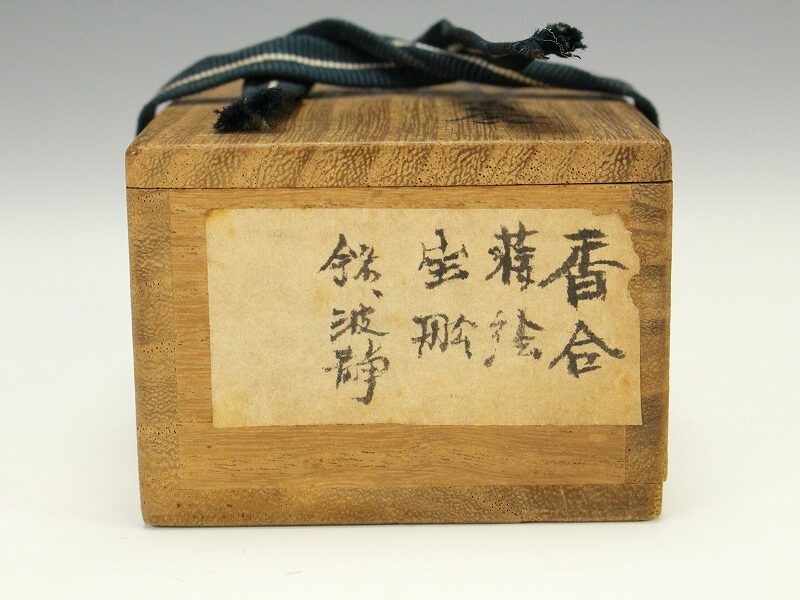 香合
蒔絵
宝船
銘、波静